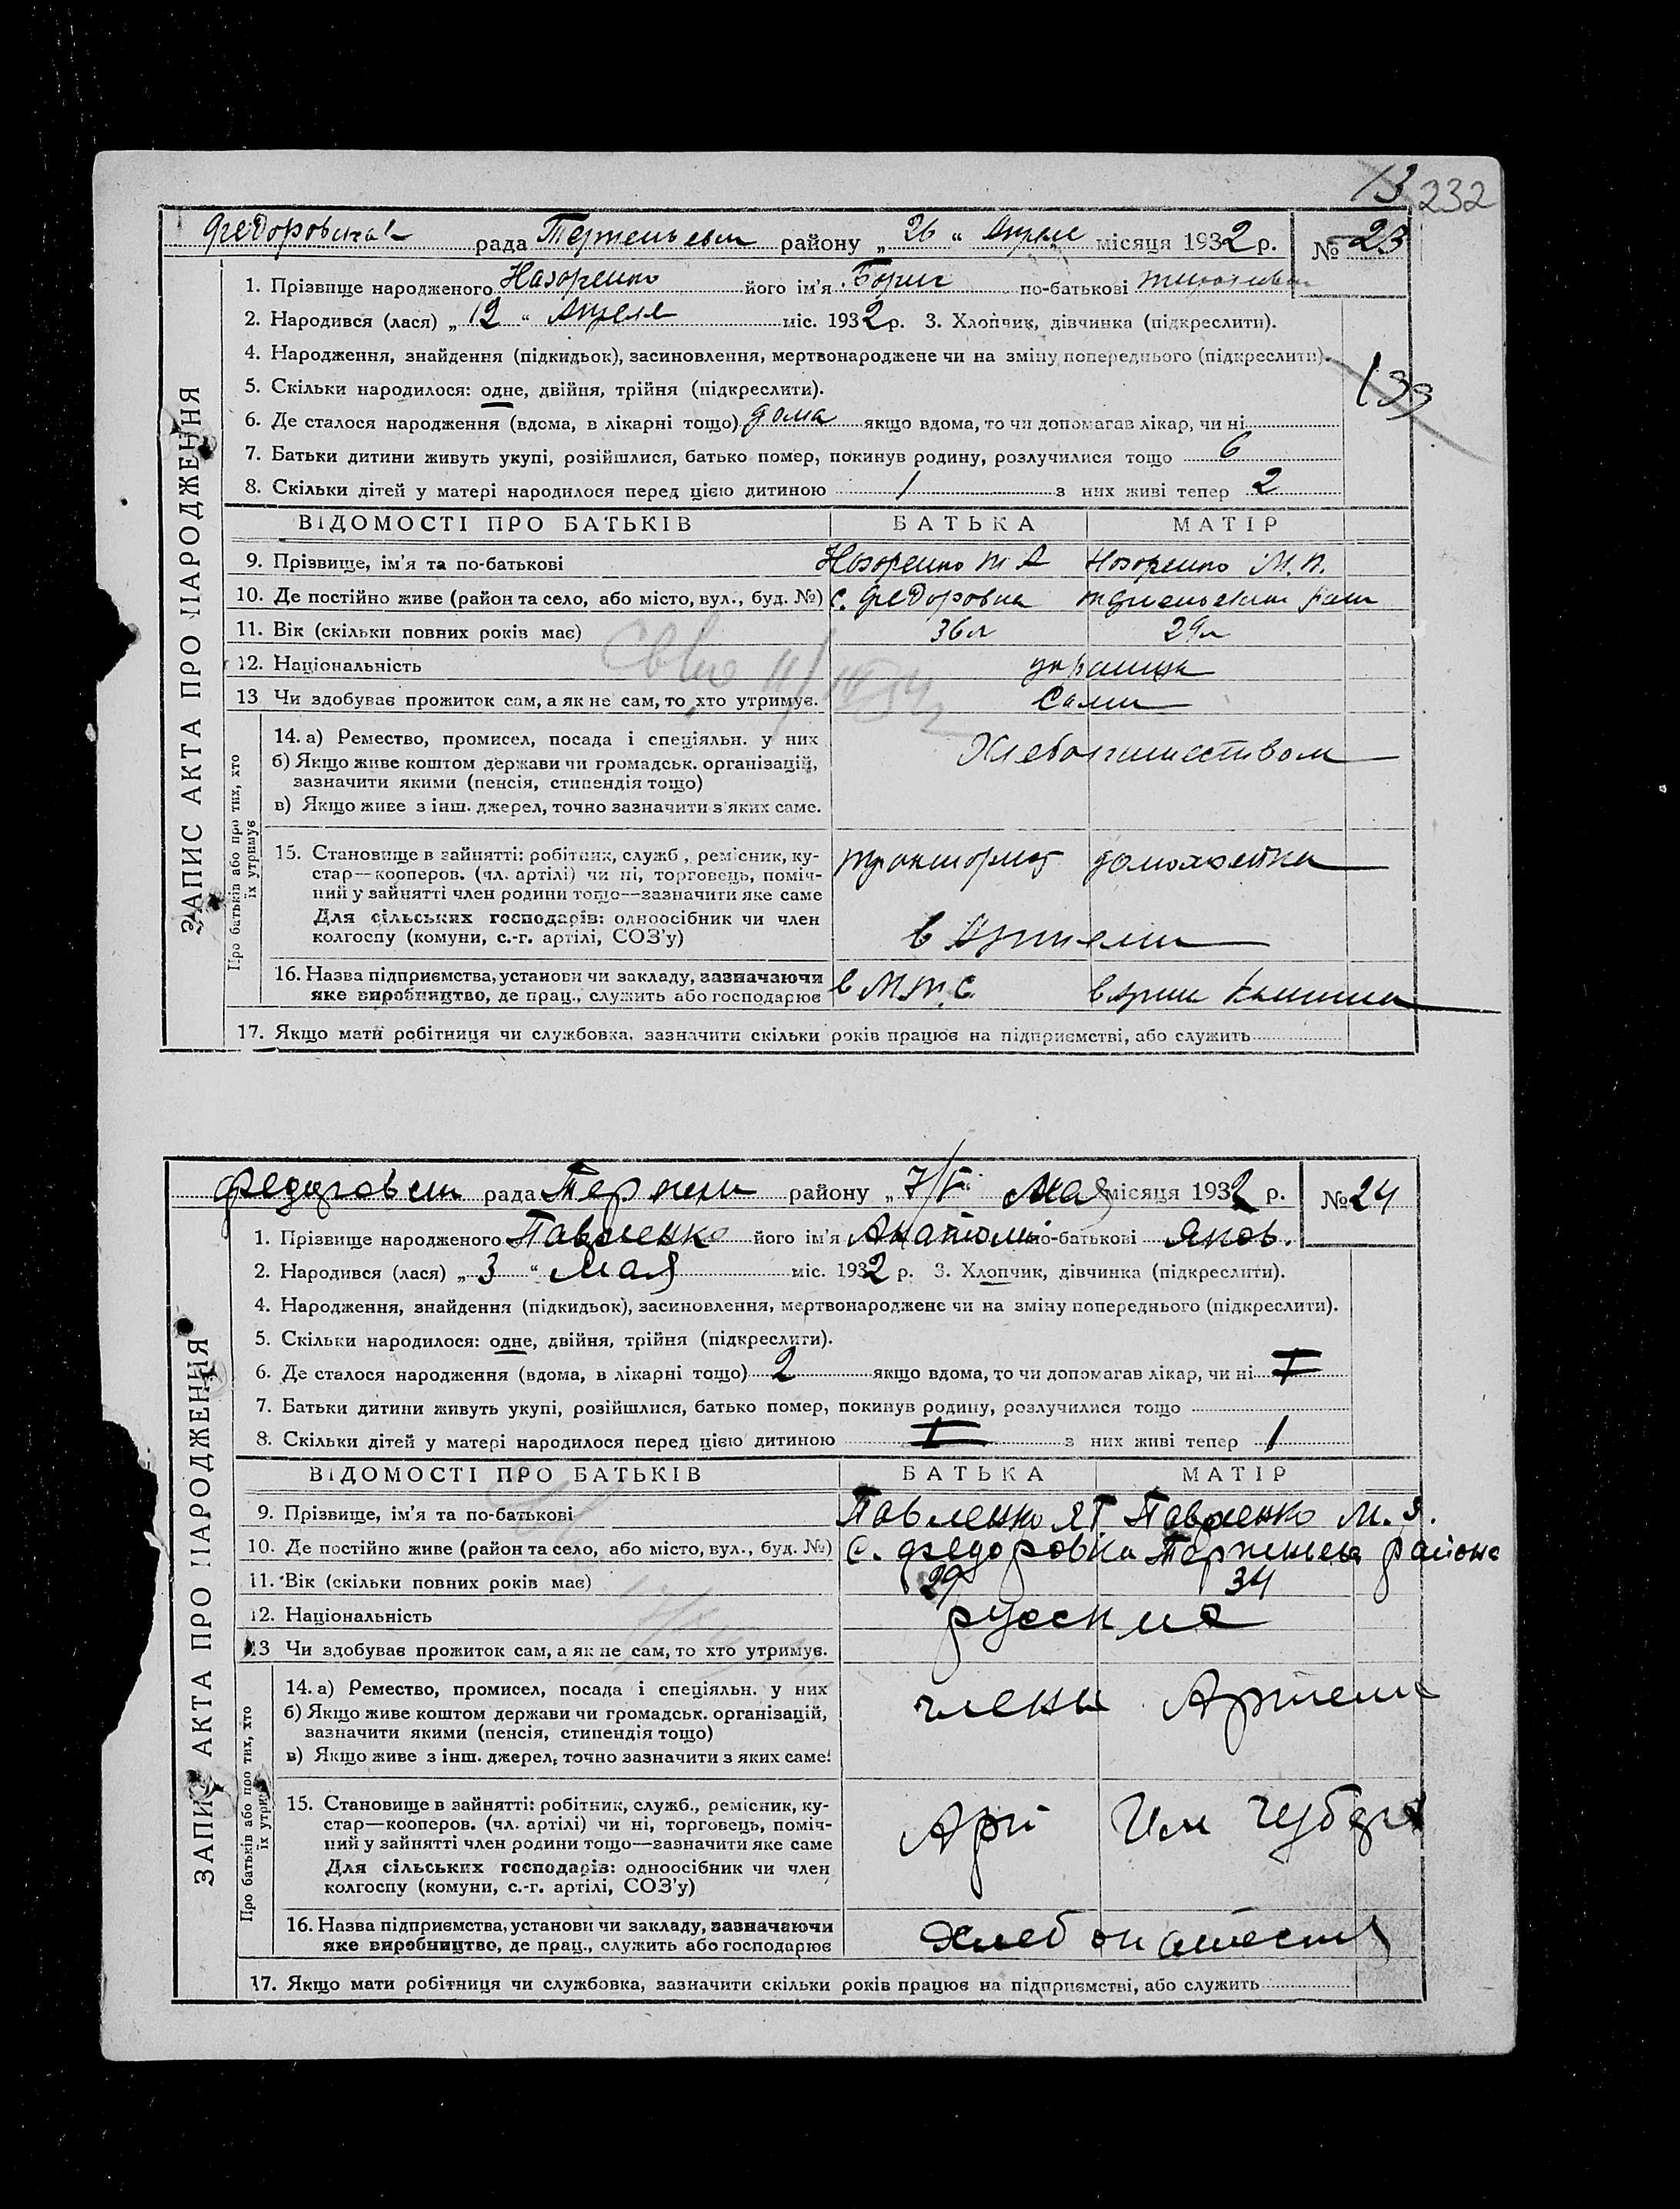 13 232
Федоровська рада Терпеньевск району „ 26 “ Апреля місяця 1932 р. № 23
1. Прізвище народженого Назоренко його ім'я Борис по-батькові
2. Народився (лася) „ 12 “ Апреля міс. 1932 р. 3. Хлопчик, дівчинка (підкреслити).
4. Народження, знайдення (підкидьок), засиновлення, мертвонароджене чи на зміну попереднього (підкреслити).
133
5. Скільки народилося: одне, двійня, трійня (підкреслити).
6. Де сталося народження (вдома, в лікарні тощо) дома якщо вдома, то чи допомагав лікар, чи ні
7. Батьки дитини живуть укупі, розійшлися, батько помер, покинув родину, розлучилися тощо 6
8. Скільки дітей у матері народилося перед цією дитиною 1 з них живі тепер 2
ВІДОМОСТІ ПРО БАТЬКІВ БАТЬКА МАТІР
9. Прізвище, ім'я та по-батькові Назоренко Т А Назоренко М. П.
10. Де постійно живе (район та село, або місто, вул., буд. №) с. Федоровка
11. Вік (скільки повних років має) 36 л 29 л
12. Національність украинцы
13 Чи здобуває прожиток сам, а як не сам, то хто утримує. Сами
ЗАПИС АКТА ПРО НАРОДЖЕННЯ
Про батьків або про тих, хто
їх утримує
14. а) Ремество, промисел, посада і спеціяльн. у них Хлебопашеством
б) Якщо живе коштом держави чи громадськ. організацій,
зазначити якими (пенсія, стипендія тощо)
в) Якщо живе з інш. джерел, точно зазначити з яких саме.
15. Становище в зайнятті: робітник, служб., ремісник, ку-
стар—кооперов. (чл. артілі) чи ні, торговець, поміч- тракторист домохозяйка
ний у зайнятті член родини тощо—зазначити яке саме
Для сільських господарів: одноосібник чи член
колгоспу (комуни, с.-г. артілі, СОЗ'у) в Артели
16. Назва підприємства, установи чи закладу, зазначаючи
яке виробництво, де прац., служить або господарює в М.Т.С. в арт
17. Якщо мати робітниця чи службовка, зазначити скільки років працює на підприємстві, або служить
Федоровск рада Терпен району „ 7/V “ Мая місяця 1932 р. № 24
1. Прізвище народженого Павленко його ім'я Анатолий по-батькові Яков.
2. Народився (лася) „ 3 “ Мая міс. 1932 р. 3. Хлопчик, дівчинка (підкреслити).
4. Народження, знайдення (підкидьок), засиновлення, мертвонароджене чи на зміну попереднього (підкреслити).
5. Скільки народилося: одне, двійня, трійня (підкреслити).
6. Де сталося народження (вдома, в лікарні тощо) 2 якщо вдома, то чи допомагав лікар, чи ні I
7. Батьки дитини живуть укупі, розійшлися, батько помер, покинув родину, розлучилися тощо
8. Скільки дітей у матері народилося перед цією дитиною I з них живі тепер 1
ВІДОМОСТІ ПРО БАТЬКІВ БАТЬКА МАТІР
9. Прізвище, ім'я та по-батькові Павленко Я Г Павленко М. Я.
10. Де постійно живе (район та село, або місто, вул., буд. №) с. Федоровка Терпеньев района
11. Вік (скільки повних років має) 29 34
12. Національність русские
13 Чи здобуває прожиток сам, а як не сам, то хто утримує.
ЗАПИС АКТА ПРО НАРОДЖЕННЯ
Про батьків або про тих, хто
їх утримує
14. а) Ремество, промисел, посада і спеціяльн. у них члены Артели
б) Якщо живе коштом держави чи громадськ. організацій,
зазначити якими (пенсія, стипендія тощо)
в) Якщо живе з інш. джерел, точно зазначити з яких саме.
15. Становище в зайнятті: робітник, служб., ремісник, ку-
стар—кооперов. (чл. артілі) чи ні, торговець, поміч- Арт Им Чубаря
ний у зайнятті член родини тощо—зазначити яке саме
Для сільських господарів: одноосібник чи член
колгоспу (комуни, с.-г. артілі, СОЗ'у)
16. Назва підприємства, установи чи закладу, зазначаючи
яке виробництво, де прац., служить або господарює
17. Якщо мати робітниця чи службовка, зазначити скільки років працює на підприємстві, або служить